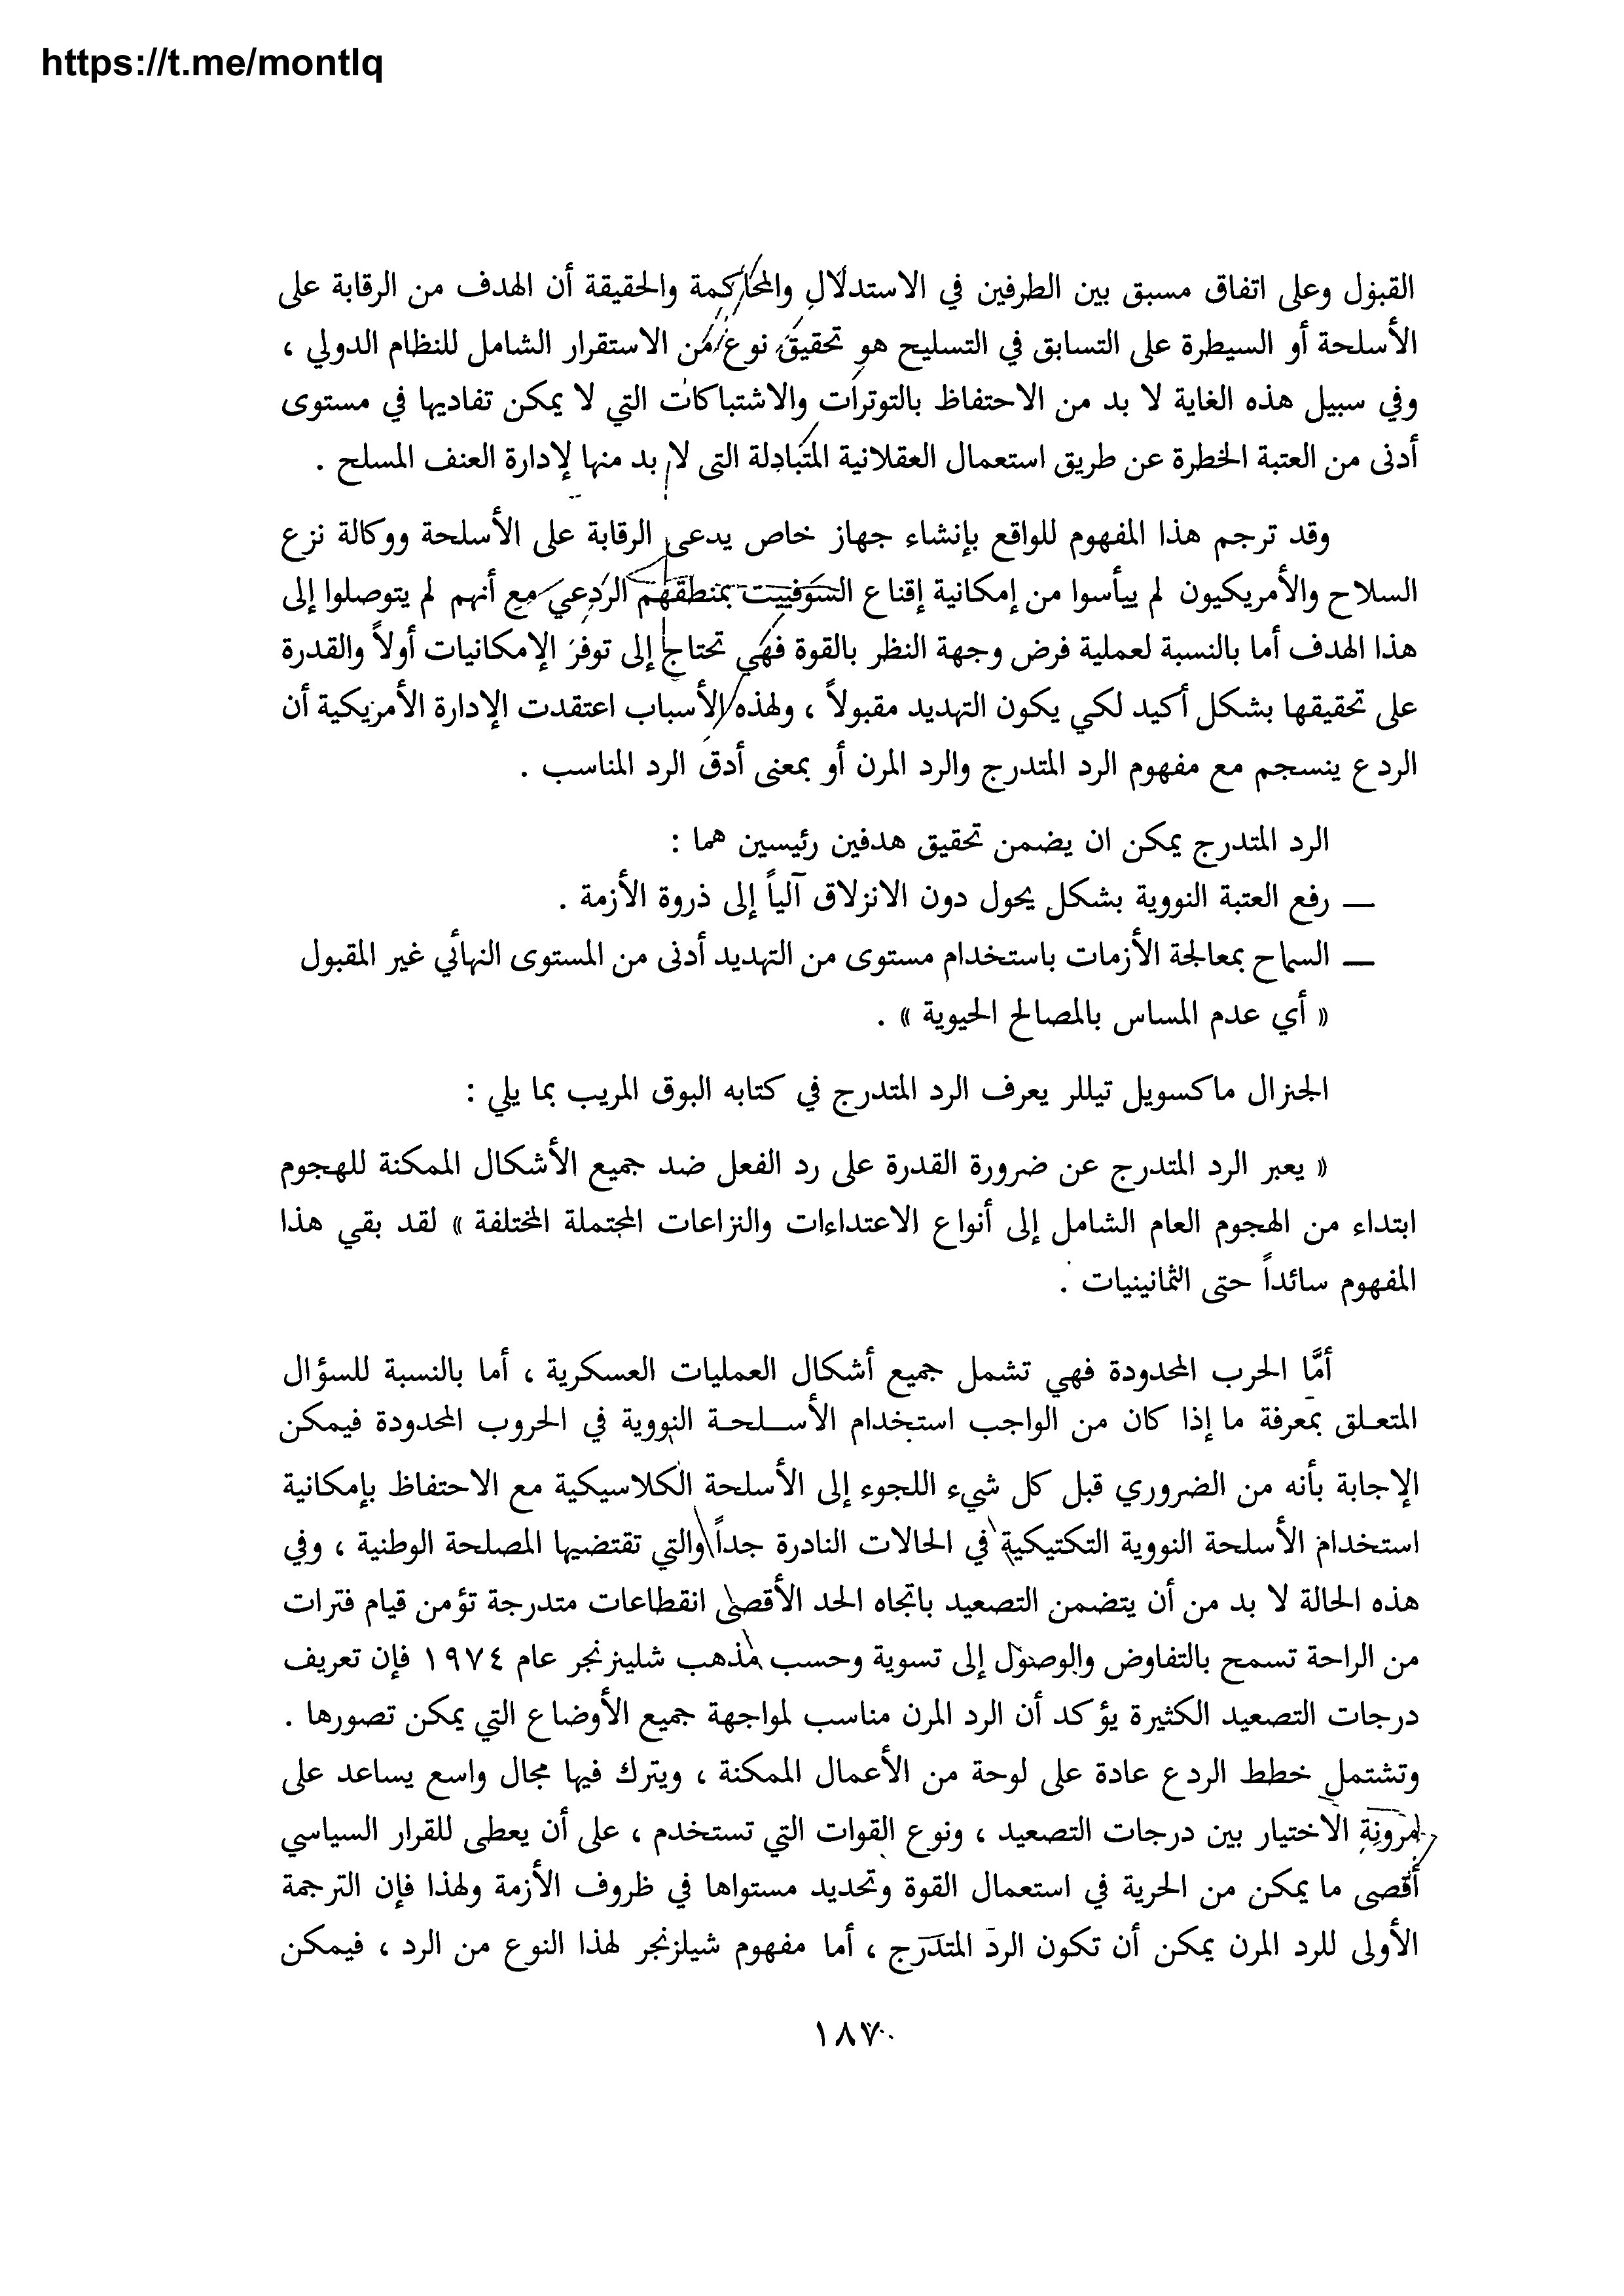 https://t.me/montlq
القبول وعلى اتفاق مسبق بين الطرفين في الاستدلال والمحاكمة والحقيقة أن الهدف من الرقابة على
الأسلحة أو السيطرة على التسابق في التسليح هو تحقيق نوع من الاستقرار الشامل للنظام الدولي ،
وفي سبيل هذه الغاية لا بد من الاحتفاظ بالتوترات والاشتباكات التي لا يمكن تفاديها في مستوى
أدنى من العتبة الخطرة عن طريق استعمال العقلانية المتبادلة التى لا بد منها لإدارة العنف المسلح .
وقد ترجم هذا المفهوم للواقع بإنشاء جهاز خاص يدعى الرقابة على الأسلحة ووكالة نزع
السلاح والأمريكيون لم ييأسوا من إمكانية إقناع السوفييت بمنطقهم الردعي مع أنهم لم يتوصلوا إلى
هذا الهدف أما بالنسبة لعملية فرض وجهة النظر بالقوة فهي تحتاج إلى توفر الإمكانيات أولاً والقدرة
على تحقيقها بشكل أكيد لكي يكون التهديد مقبولاً ، ولهذه الأسباب اعتقدت الإدارة الأمريكية أن
الردع ينسجم مع مفهوم الرد المتدرج والرد المرن أو بمعنى أدق الرد المناسب .
الرد المتدرج يمكن ان يضمن تحقيق هدفين رئيسين هما :
— رفع العتبة النووية بشكل يحول دون الانزلاق آلياً إلى ذروة الأزمة .
— السماح بمعالجة الأزمات باستخدام مستوى من التهديد أدنى من المستوى النهائي غير المقبول
« أي عدم المساس بالمصالح الحيوية » .
الجنرال ماكسويل تيللر يعرف الرد المتدرج في كتابه البوق المريب بما يلي :
« يعبر الرد المتدرج عن ضرورة القدرة على رد الفعل ضد جميع الأشكال الممكنة للهجوم
ابتداء من الهجوم العام الشامل إلى أنواع الاعتداءات والنزاعات المحتملة المختلفة » لقد بقي هذا
المفهوم سائداً حتى الثمانينيات .
أمَّا الحرب المحدودة فهي تشمل جميع أشكال العمليات العسكرية ، أما بالنسبة للسؤال
المتعلق بمعرفة ما إذا كان من الواجب استخدام الأسلحة النووية في الحروب المحدودة فيمكن
الإجابة بأنه من الضروري قبل كل شيء اللجوء إلى الأسلحة الكلاسيكية مع الاحتفاظ بإمكانية
استخدام الأسلحة النووية التكتيكية في الحالات النادرة جداً والتي تقتضيها المصلحة الوطنية ، وفي
هذه الحالة لا بد من أن يتضمن التصعيد باتجاه الحد الأقصى انقطاعات متدرجة تؤمن قيام فترات
من الراحة تسمح بالتفاوض والوصول إلى تسوية وحسب مذهب شلينزنجر عام ١٩٧٤ فإن تعريف
درجات التصعيد الكثيرة يؤكد أن الرد المرن مناسب لمواجهة جميع الأوضاع التي يمكن تصورها .
وتشتمل خطط الردع عادة على لوحة من الأعمال الممكنة ، ويترك فيها مجال واسع يساعد على
مرونة الاختيار بين درجات التصعيد ، ونوع القوات التي تستخدم ، على أن يعطى للقرار السياسي
أقصى ما يمكن من الحرية في استعمال القوة وتحديد مستواها في ظروف الأزمة ولهذا فإن الترجمة
الأولى للرد المرن يمكن أن تكون الرد المتدرج ، أما مفهوم شيلزنجر لهذا النوع من الرد ، فيمكن
١٨٧